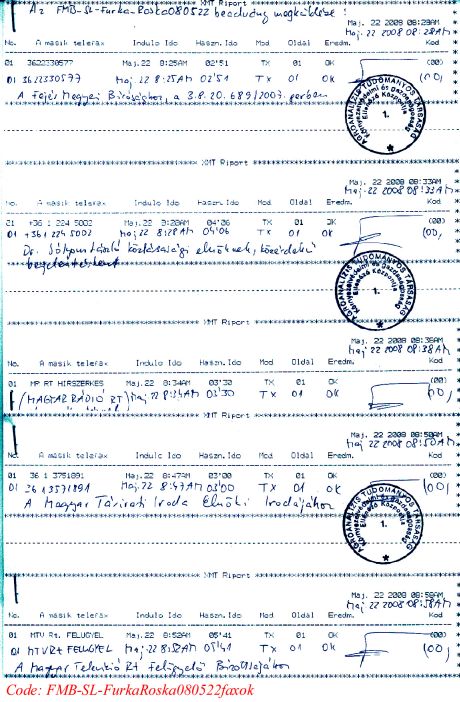 XMT Riport
Az FMB-SL-FurkaRoska080522 beadvány megküldése:
Maj. 22 2008 08:28AM
Maj. 22 2008 08:28AM
No. A masik telefax Indulo Ido Haszn.Ido Mod Oldal Eredm. Kod
01 3622330577 Maj.22 8:25AM 02'51 TX 01 OK (00)
01 3622330577 Maj.22 8:25AM 02'51 TX 01 OK (00)
A Fejér Megyei Bírósághoz, a 3.P.20.689/2007. perben
AGROANALÍZIS TUDOMÁNYOS TÁRSASÁG
Környezetvédelmi és gazdaságossági
Ellenőrző Központja
1.
XMT Riport
Maj. 22 2008 08:33AM
Maj 22 2008 08:33AM
No. A masik telefax Indulo Ido Haszn.Ido Mod Oldal Eredm. Kod
01 +36 1 224 5002 Maj.22 8:28AM 04'06 TX 01 OK (00)
01 +36 1 224 5002 Maj.22 8:28AM 04'06 TX 01 OK (00)
Dr. Sólyom László köztársasági elnöknek, közérdekű
bejelentésként
AGROANALÍZIS TUDOMÁNYOS TÁRSASÁG
Környezetvédelmi és gazdaságossági
Ellenőrző Központja
1.
XMT Riport
Maj. 22 2008 08:38AM
Maj 22 2008 08:38AM
No. A masik telefax Indulo Ido Haszn.Ido Mod Oldal Eredm. Kod
01 MP RT HIRSZERKES Maj.22 8:34AM 03'30 TX 01 OK (00)
(MAGYAR RÁDIÓ RT) Maj 22 8:34AM 03'30 TX 01 OK (00)
XMT Riport
Maj. 22 2008 08:50AM
Maj 22 2008 08:50AM
No. A masik telefax Indulo Ido Haszn.Ido Mod Oldal Eredm. Kod
01 36 1 3751891 Maj.22 8:47AM 03'00 TX 01 OK (00)
01 36 1 3571891 Maj.22 8:47AM 03'00 TX 01 OK (00)
A Magyar Távirati Iroda Elnöki Irodájához
AGROANALÍZIS TUDOMÁNYOS TÁRSASÁG
Környezetvédelmi és gazdaságossági
Ellenőrző Központja
1.
XMT Riport
Maj. 22 2008 08:58AM
Maj 22 2008 08:58AM
No. A masik telefax Indulo Ido Haszn.Ido Mod Oldal Eredm. Kod
01 MTU Rt. FELUGYEL Maj.22 8:52AM 05'41 TX 01 OK (00)
01 MTV RT FELUGYEL Maj.22 8:52AM 05'41 TX 01 OK (00)
A Magyar Televízió Rt Felügyelő Bizottságához
Code: FMB-SL-FurkaRoska080522faxok